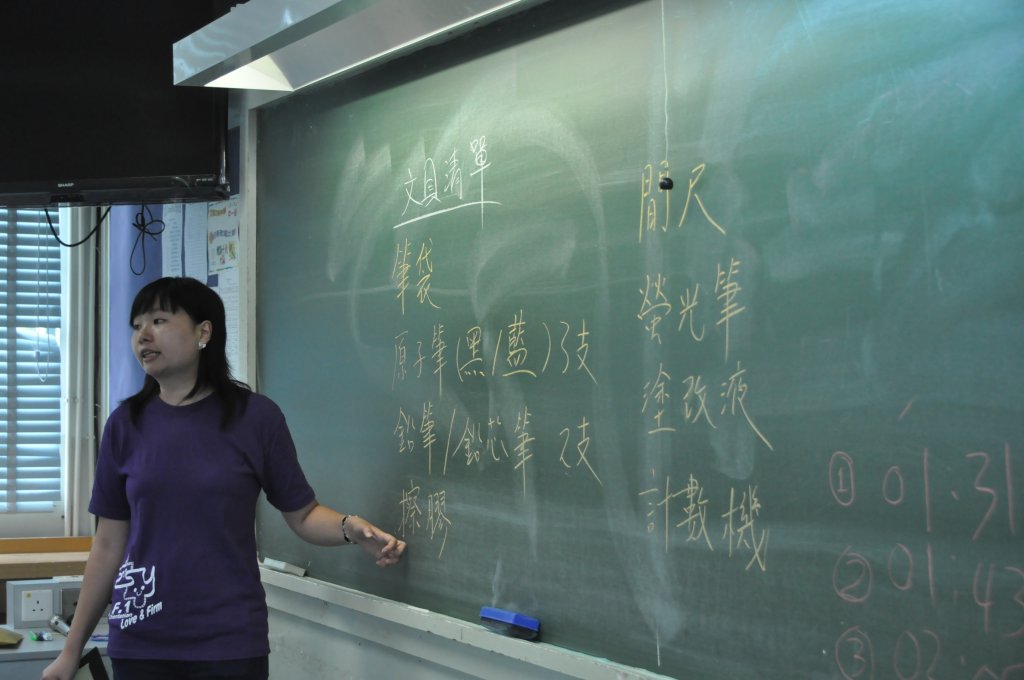 SHARP
文具清單
筆袋
原子筆(黑/藍)3支
鉛筆/鉛芯筆 2支
擦膠
間尺
螢光筆
塗改液
計數機
① 01.31
② 01.43
③ 02
F.1
Love & Firm